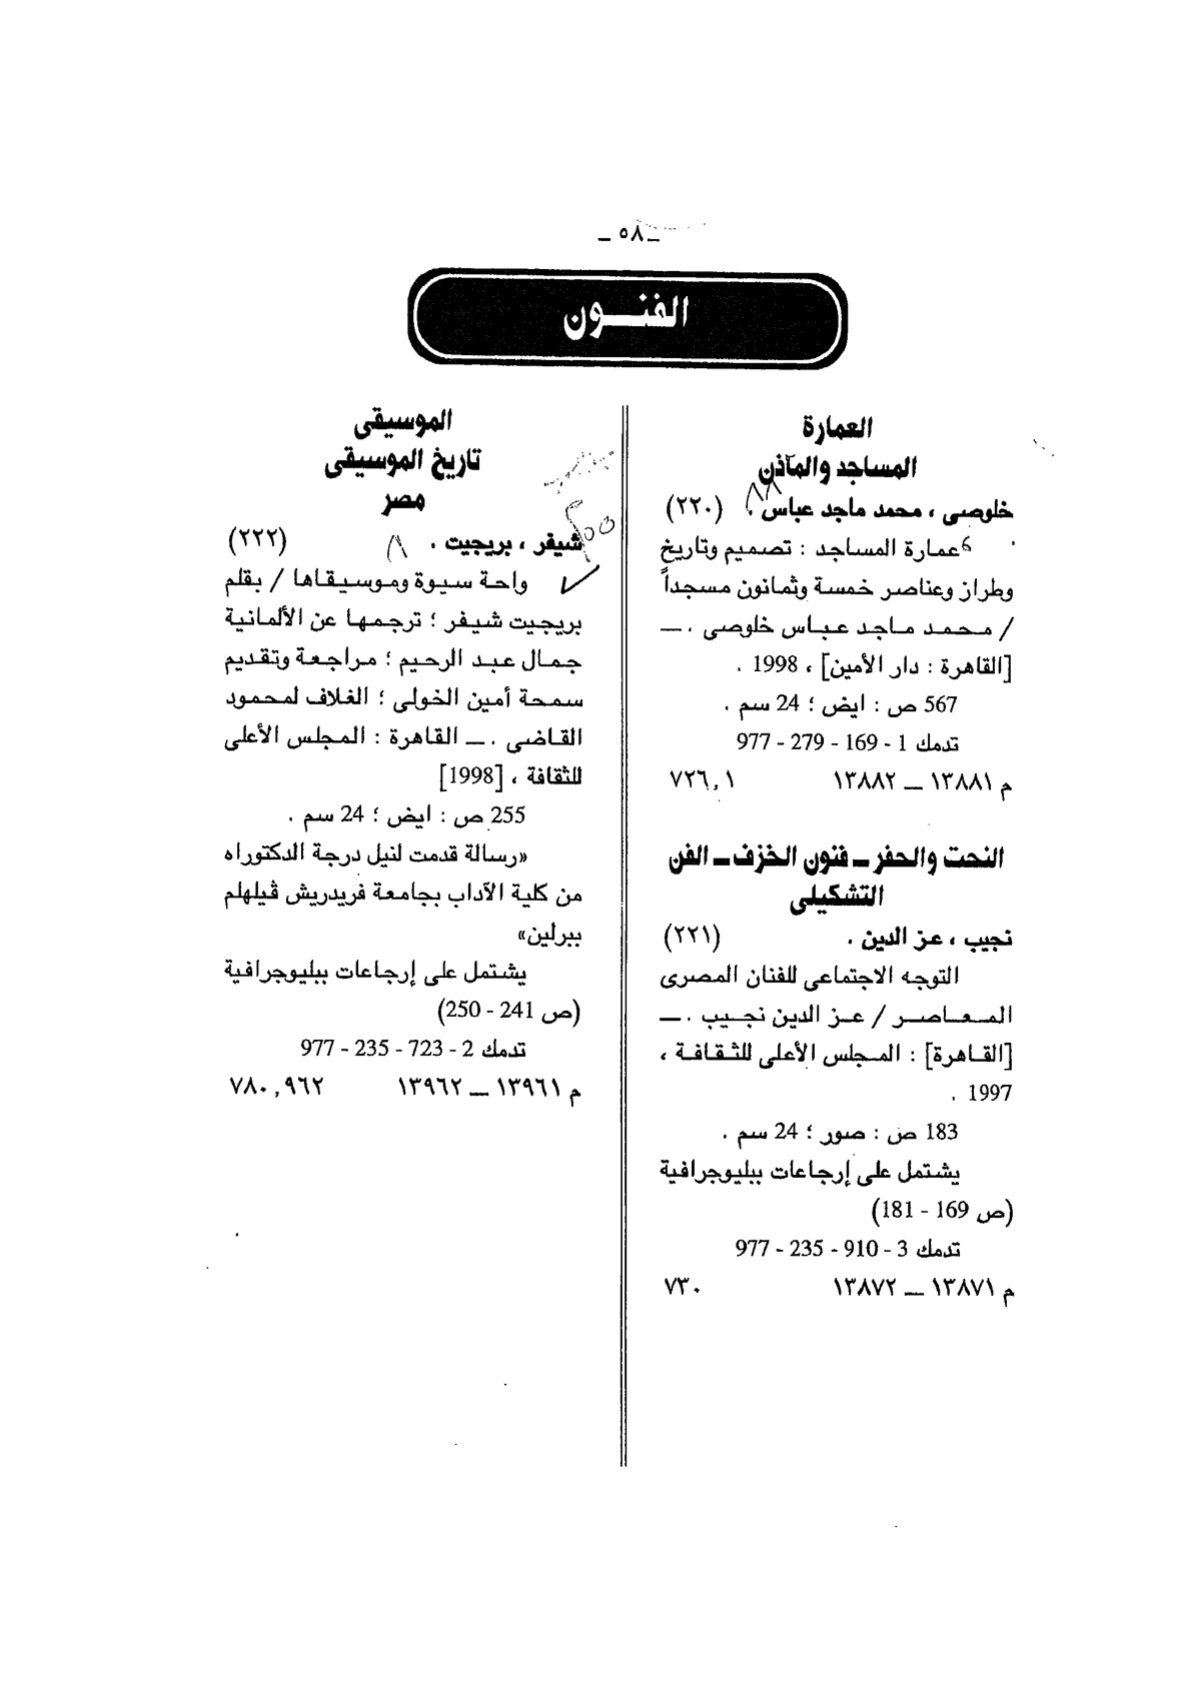 ـ ٥٨ ـ
الفنـــون
العمارة
المساجد والمآذن
خلوصى ، محمد ماجد عباس . (٢٢٠)
عمارة المساجد : تصميم وتاريخ
وطراز وعناصر خمسة وثمانون مسجداً
/ محمد ماجد عباس خلوصى . ـــ
[القاهرة : دار الأمين] ، 1998 .
567 ص : ايض ؛ 24 سم .
تدمك 1 - 169 - 279 - 977
م ١٣٨٨١ ـــ ١٣٨٨٢ ٧٢٦,١
النحت والحفر ـ فنون الخزف ـ الفن
التشكيلى
نجيب ، عز الدين . (٢٢١)
التوجه الاجتماعى للفنان المصرى
المعاصر / عز الدين نجيب . ـــ
[القاهرة] : المجلس الأعلى للثقافة ،
1997 .
183 ص : صور ؛ 24 سم .
يشتمل على إرجاعات ببليوجرافية
(ص 169 - 181)
تدمك 3 - 910 - 235 - 977
م ١٣٨٧١ ـــ ١٣٨٧٢ ٧٣٠
الموسيقى
تاريخ الموسيقى
مصر
شيفر ، بريجيت . ٨ (٢٢٢)
واحة سيوة وموسيقاها / بقلم
بريجيت شيفر ؛ ترجمها عن الألمانية
جمال عبد الرحيم ؛ مراجعة وتقديم
سمحة أمين الخولى ؛ الغلاف لمحمود
القاضى . ـــ القاهرة : المجلس الأعلى
للثقافة ، [1998]
255 ص : ايض ؛ 24 سم .
«رسالة قدمت لنيل درجة الدكتوراه
من كلية الآداب بجامعة فريدريش ڤيلهلم
ببرلين»
يشتمل على إرجاعات ببليوجرافية
(ص 241 - 250)
تدمك 2 - 723 - 235 - 977
م ١٣٩٦١ ـــ ١٣٩٦٢ ٧٨٠,٩٦٢